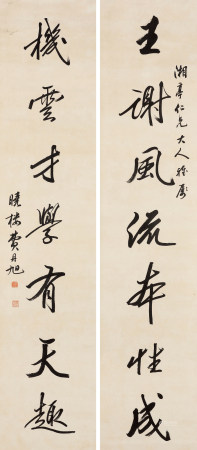 湘亭仁兄大人雅属
王謝風流本性成
機雲才學有天趣
曉楼費丹旭